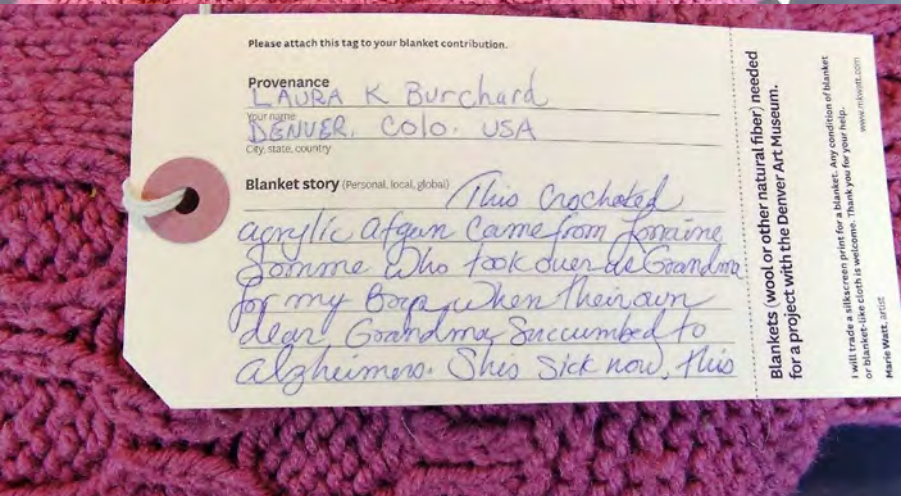 Please attach this tag to your blanket contribution.
Provenance
LAURA K Burchard
Your name
DENVER, Colo. USA
City, state, country
Blanket story (Personal, local, global)
This Crocheted
acrylic Afgan Came from Lorraine
Somme Who took over as Grandma
for my Boys when their own
dear Grandma Succumbed to
Alzheimers. Shes Sick now, this
Blankets (wool or other natural fiber) needed
for a project with the Denver Art Museum.
I will trade a silkscreen print for a blanket. Any condition of blanket
or blanket-like cloth is welcome. Thank you for your help.
Marie Watt, artist
www.mkwatt.com